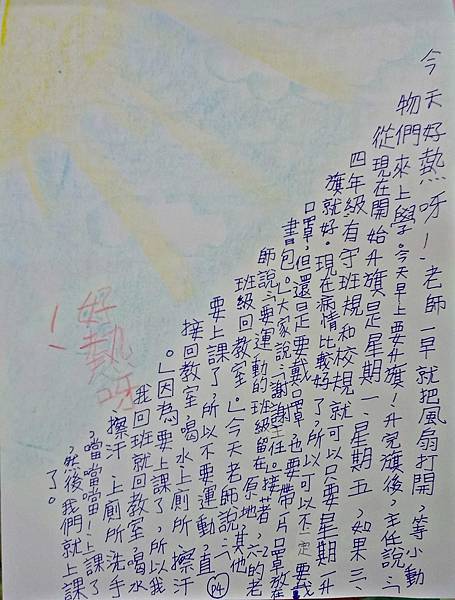 今天好熱呀!老師一早就把風扇打開,等小動
物們來上學。今天早上要升旗!升完旗後,主任說:「
從現在開始升旗是星期一、星期五,如果三、
四年級有守班規和校規就可以只要星期一升
旗就好。現在病情比較好了,所以可以不一定要戴
口罩,但還是要戴口罩也要帶一片口罩放在
書包。」大家說:「謝謝主任。」接著,二、六的老
師說:「要運動的班級留在原地,其他
班級回教室。」今天老師說:「
要上課了,所以不要運動,直
接回教室喝水上廁所、擦汗
。」因為要上課了,所以我
我回班就回教室,喝水
,擦汗、上廁所、洗手
,噹噹噹!上課了
,然後我們就上課
了。
好熱呀
!
P4